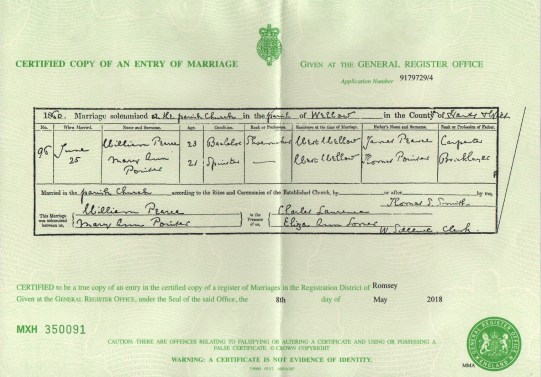 CERTIFIED COPY OF AN ENTRY OF MARRIAGE
GIVEN AT THE GENERAL REGISTER OFFICE
Application Number 9179729/4
Marriage solemnized at the parish Church in the parish of Wellow in the County of Hants
No. When Married. Name and Surname. Age. Condition. Rank or Profession. Residence at the time of Marriage. Father's Name and Surname. Rank or Profession of Father.
96 June 25 William Pearce 23 Bachelor Shoemaker West Wellow James Pearce Carpenter
Mary Ann Pointer 21 Spinster — West Wellow Thomas Pointer Bricklayer
Married in the parish Church according to the Rites and Ceremonies of the Established Church, by or after by me,
Thomas S. Smith
This Marriage was solemnized between us, William Pearce Mary Ann Pointer in the Presence of us, Charles Lawrence Eliza Ann
Clerk
CERTIFIED to be a true copy of an entry in the certified copy of a register of Marriages in the Registration District of Romsey
Given at the GENERAL REGISTER OFFICE, under the Seal of the said Office, the 8th day of May 2018
MXH 350091
CAUTION: THERE ARE OFFENCES RELATING TO FALSIFYING OR ALTERING A CERTIFICATE AND USING OR POSSESSING A
FALSE CERTIFICATE. © CROWN COPYRIGHT
WARNING: A CERTIFICATE IS NOT EVIDENCE OF IDENTITY.
GENERAL REGISTER OFFICE ENGLAND
MMA